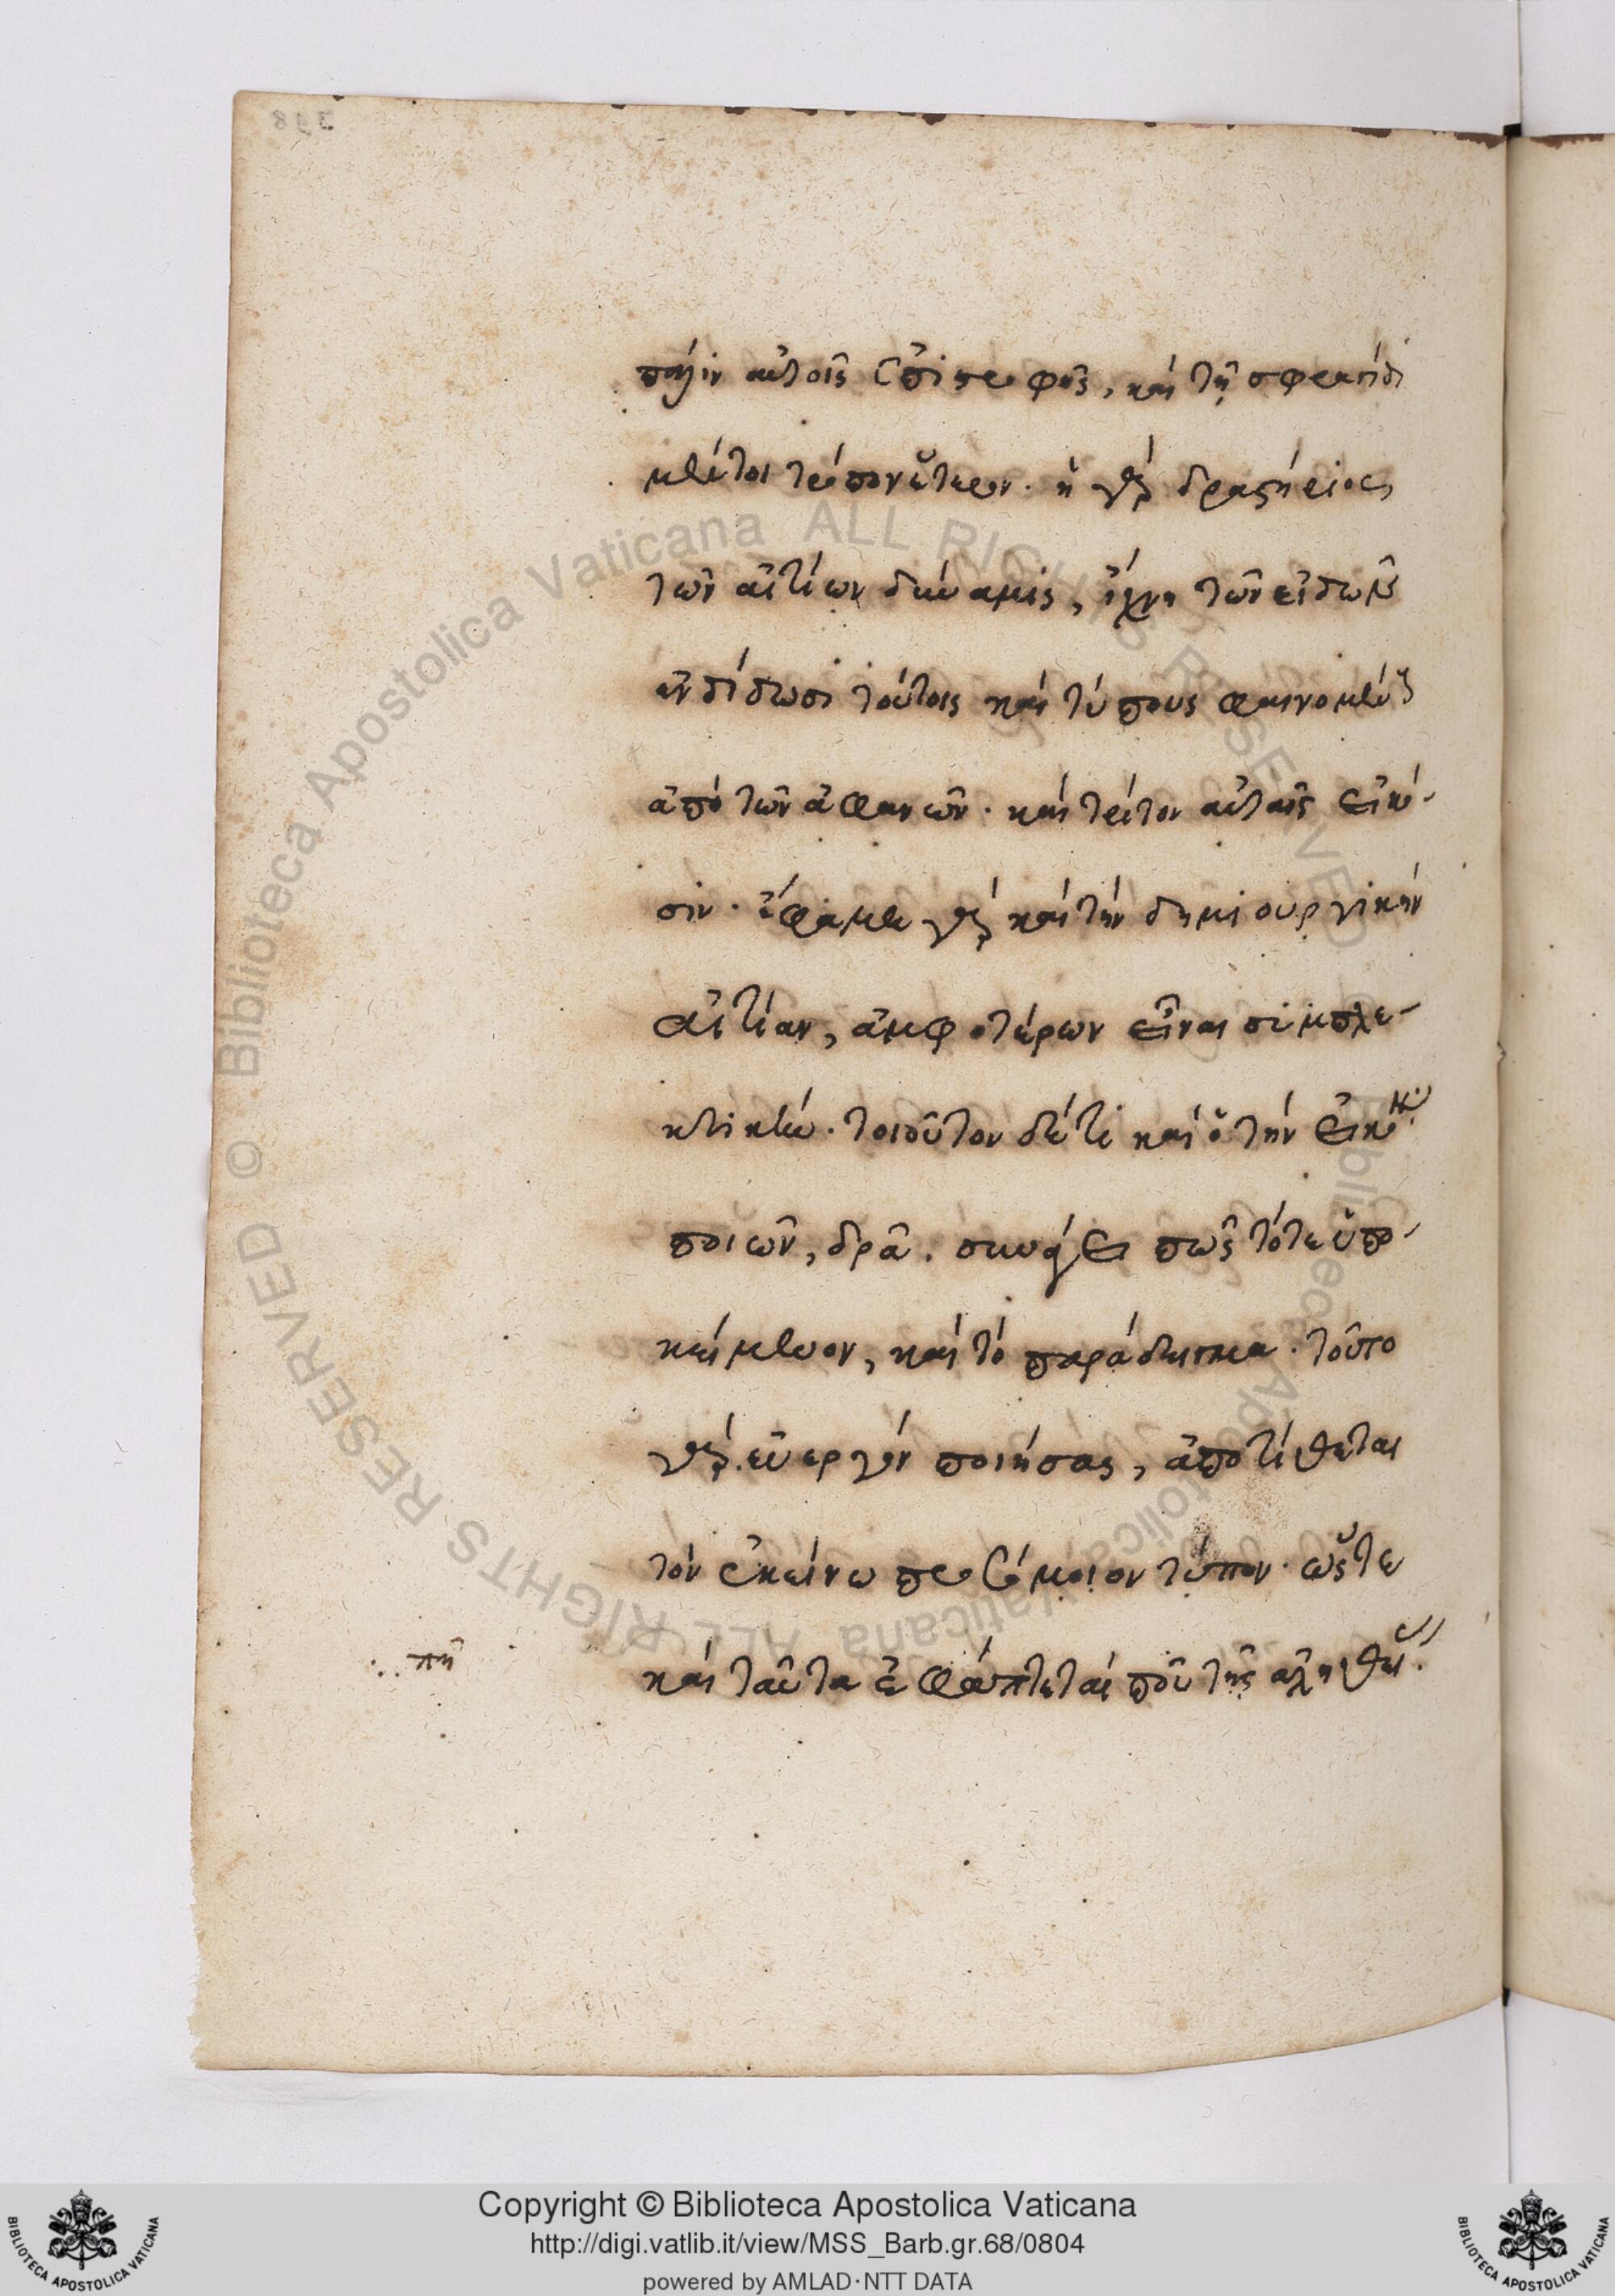 398
πάλιν αὐτοῖς ἐπιστροφῆς, καὶ τῇ σφραγίδι
μέντοι τρόπον ἕτερον. ἡ γὰρ δραστήριος
τῶν αἰτίων δύναμις, ἴχνη τῶν εἰδῶν
ἐνδίδωσι τούτοις καὶ τύπους φαινομένους
ἀπὸ τῶν ἀφανῶν. καὶ τρίτον αὐταῖς εἰκό-
σιν. ἔφαμεν γὰρ καὶ τὴν δημιουργικὴν
αἰτίαν, ἀμφοτέρων εἶναι συμπλε-
κτικήν. τοιοῦτον δέ τι καὶ ὁ τὴν εἰκόνα
ποιῶν, δρᾷ. συνάγει πως τό τε ὑπο-
κείμενον, καὶ τὸ παράδειγμα. τοῦτο
γὰρ εὐεργὸν ποιήσας, ἀποτίθεται
τὸν ἐκείνω προσόμοιον τύπον. ὥστε
καὶ ταῦτα ἐφάπτεταί που τῆς ἀληθεί
πῆ
Copyright © Biblioteca Apostolica Vaticana
http://digi.vatlib.it/view/MSS_Barb.gr.68/0804
powered by AMLAD·NTT DATA
BIBLIOTECA APOSTOLICA VATICANA
BIBLIOTECA APOSTOLICA VATICANA
© Biblioteca Apostolica Vaticana ALL RIGHTS RESERVED © Biblioteca Apostolica Vaticana ALL RIGHTS RESERVED